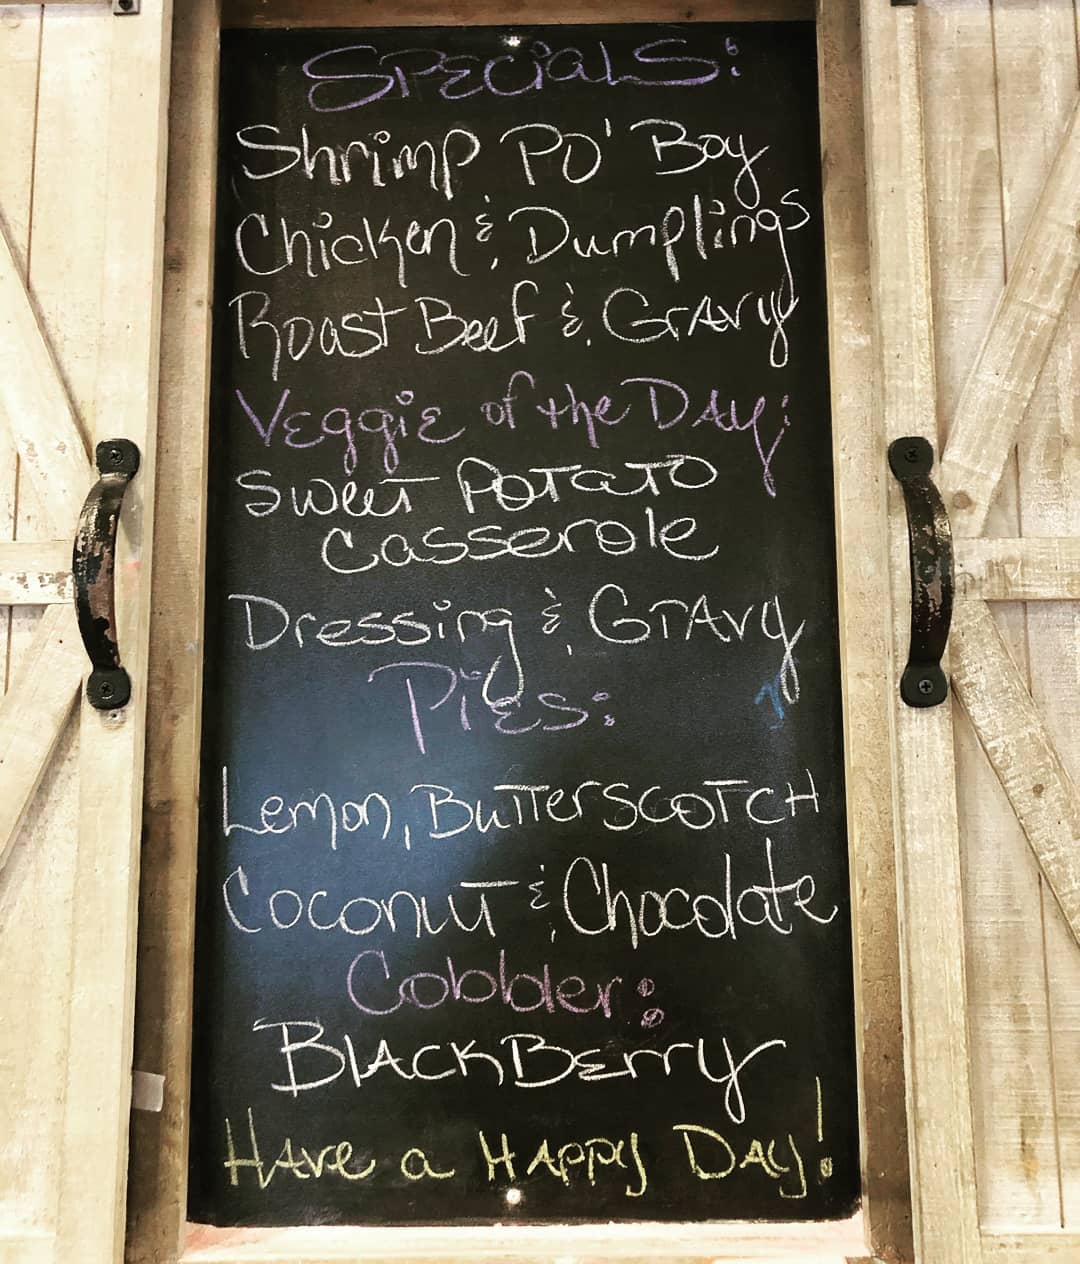 Specials:
Shrimp Po' Boy
Chicken & Dumplings
Roast Beef & Gravy
Veggie of the Day:
Sweet Potato
Casserole
Dressing & Gravy
Pies:
Lemon, Butterscotch
Coconut & Chocolate
Cobbler:
BlackBerry
Have a Happy Day!